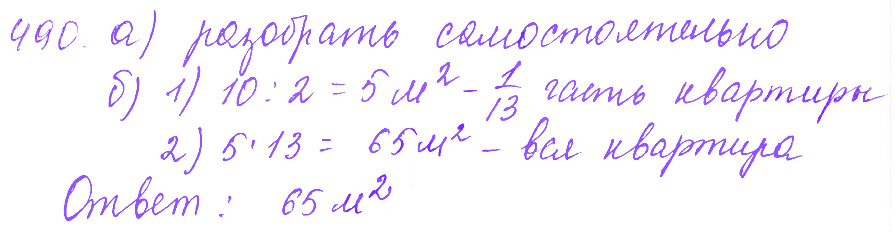 490. а) разобрать самостоятельно
б) 1) 10 : 2 = 5 м² - 1/13 часть квартиры
2) 5 · 13 = 65 м² - вся квартира
Ответ : 65 м²